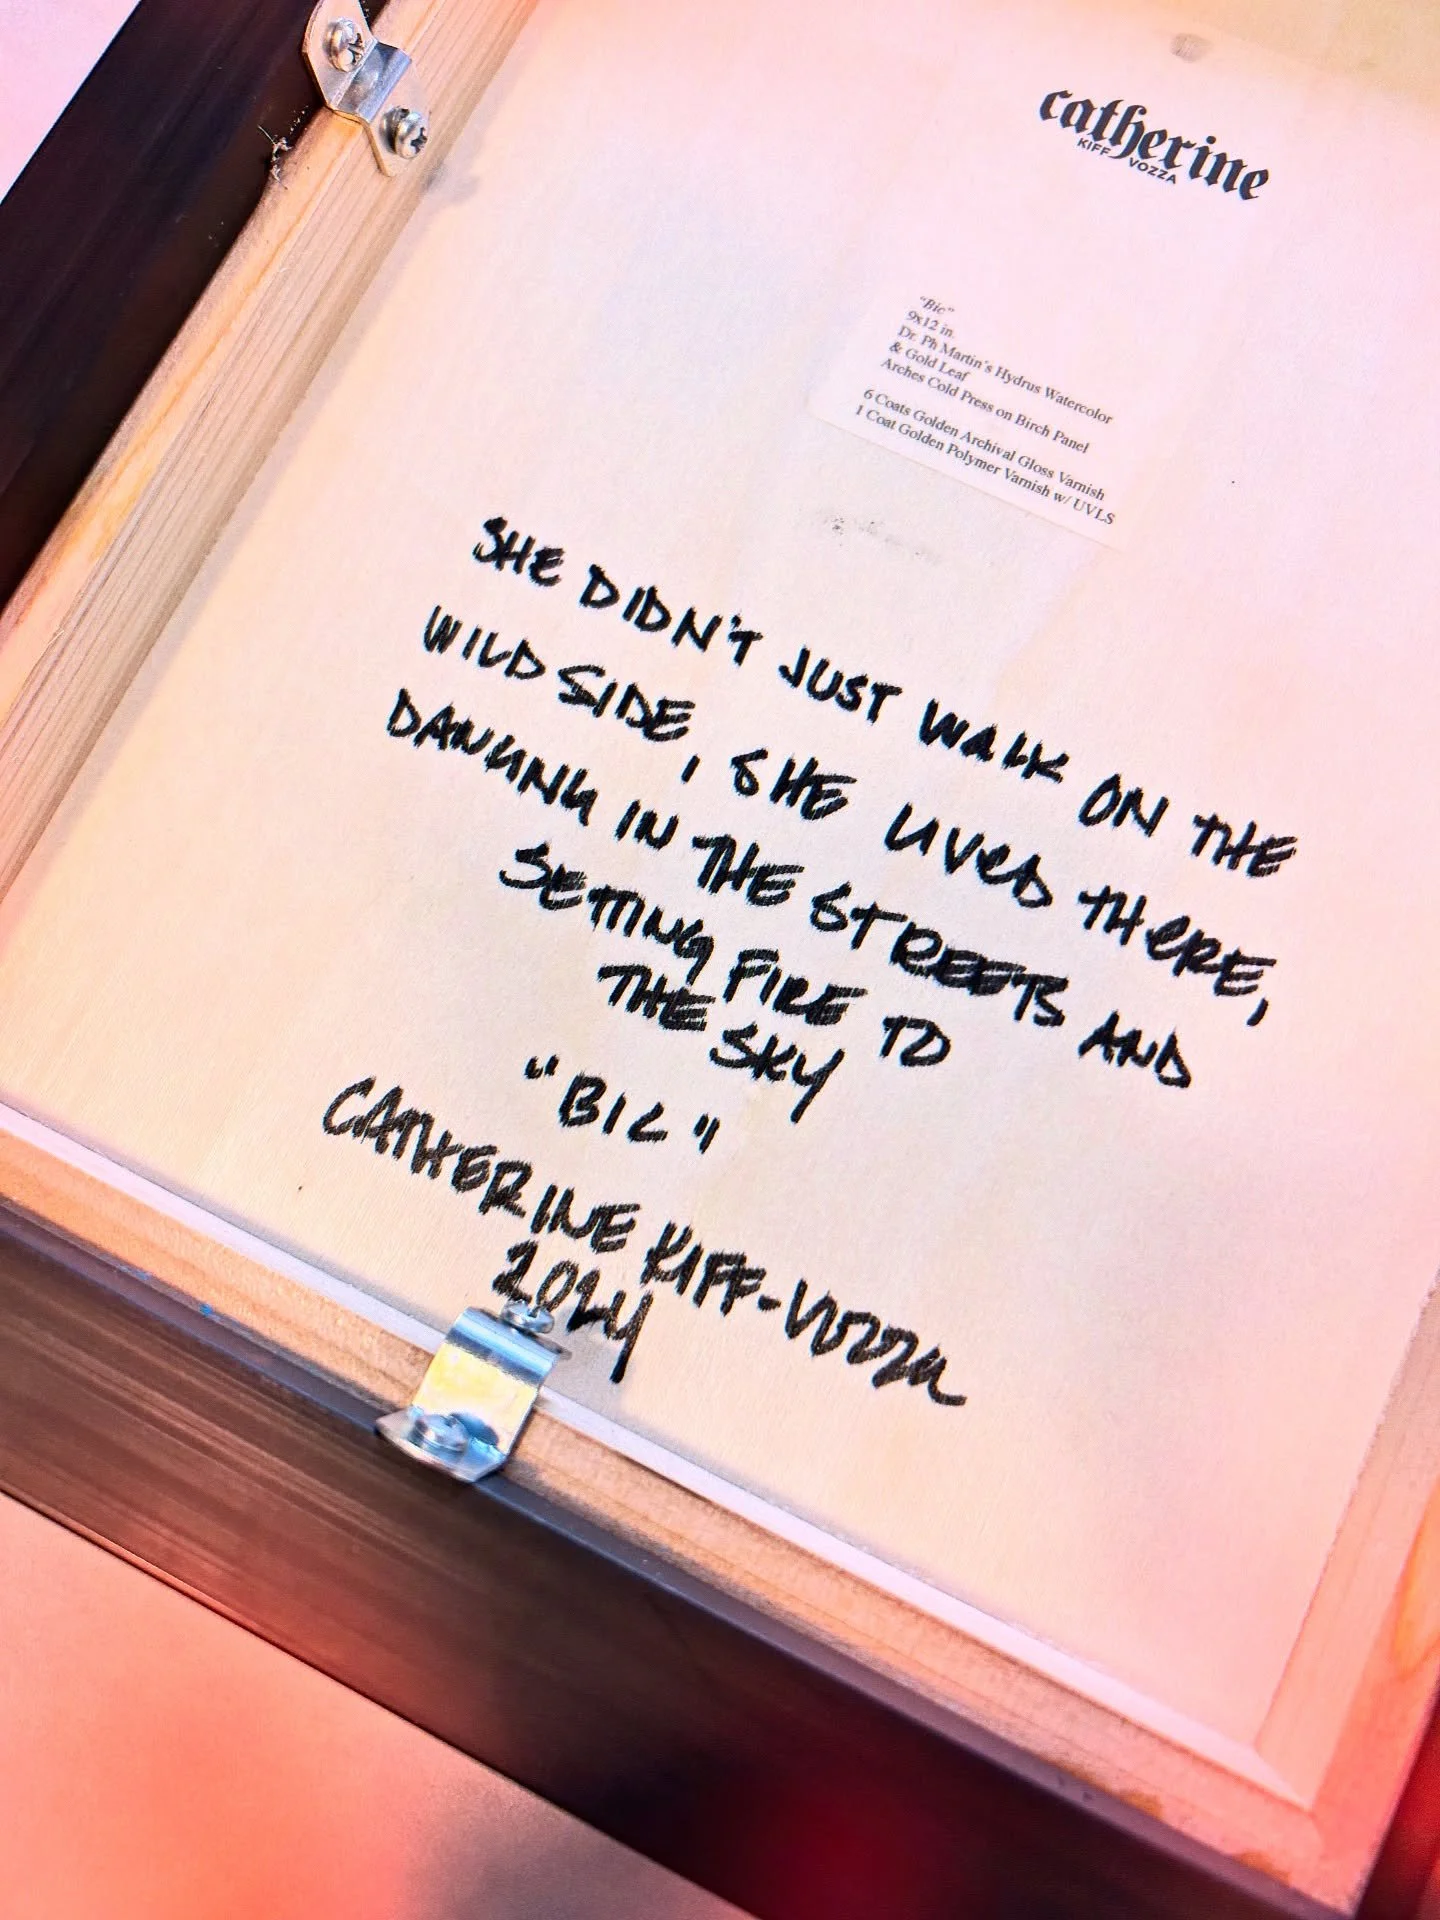 catherine
KIFF VOZZA
“Bic”
9x12 in.
Dr. Ph Martin's Hydrus Watercolor
& Gold Leaf
Arches Cold Press on Birch Panel
6 Coats Golden Archival Gloss Varnish
1 Coat Golden Polymer Varnish w/ UVLS
SHE DIDN'T JUST WALK ON THE
WILD SIDE, SHE LIVED THERE,
DANCING IN THE STREETS AND
SETTING FIRE TO
THE SKY
"BIC"
CATHERINE KIFF-VOZZA
2024